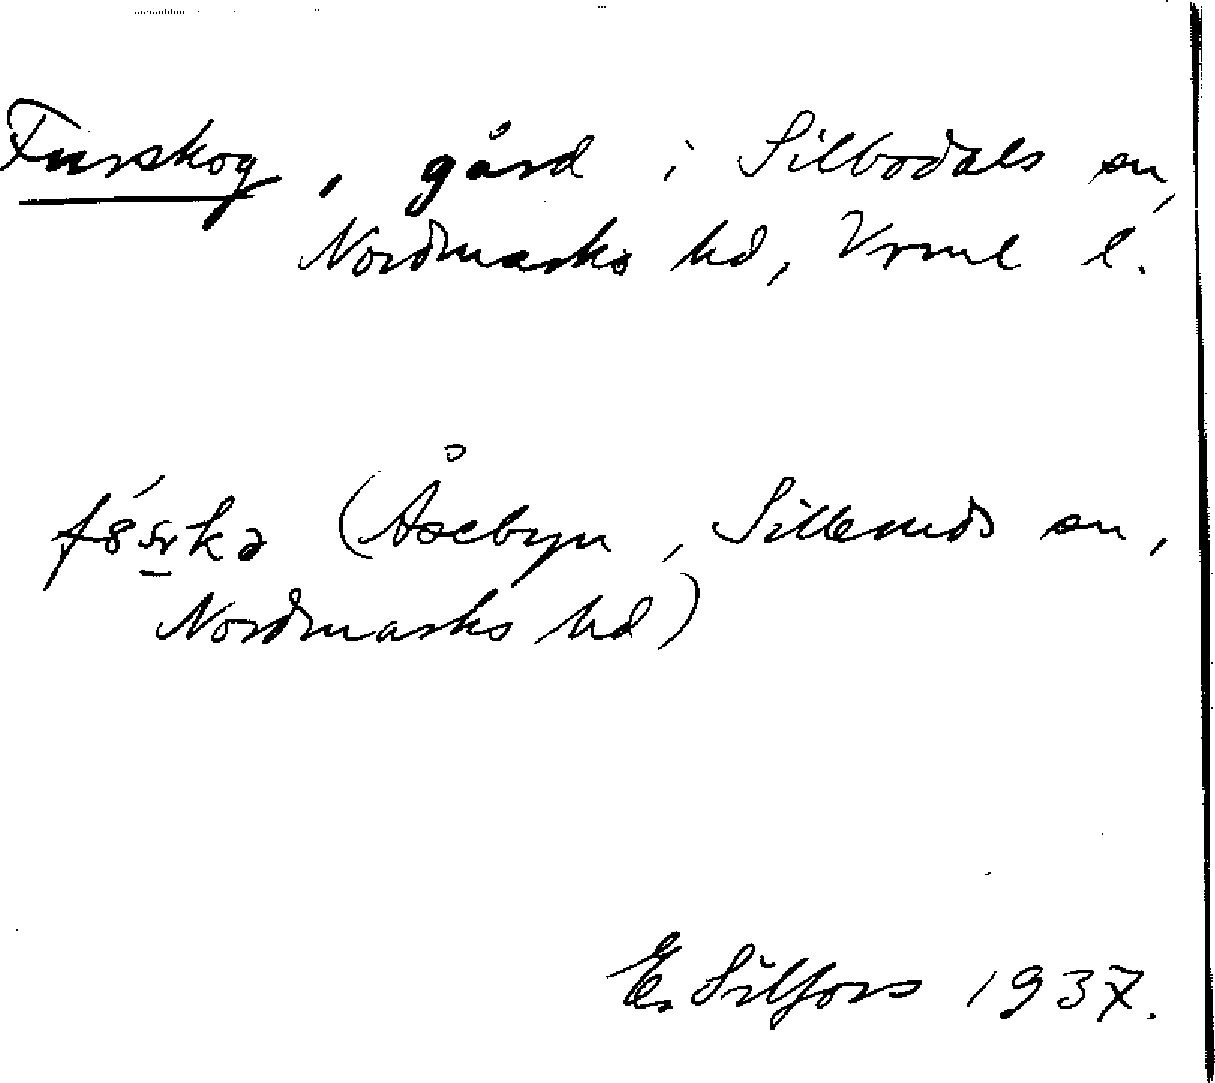 Furskog, gård i Silbodals sn,
Nordmarks hd, Vrml l.
(Åsebyn, Silleruds sn,
Nordmarks hd)
E. Silfors 1937.